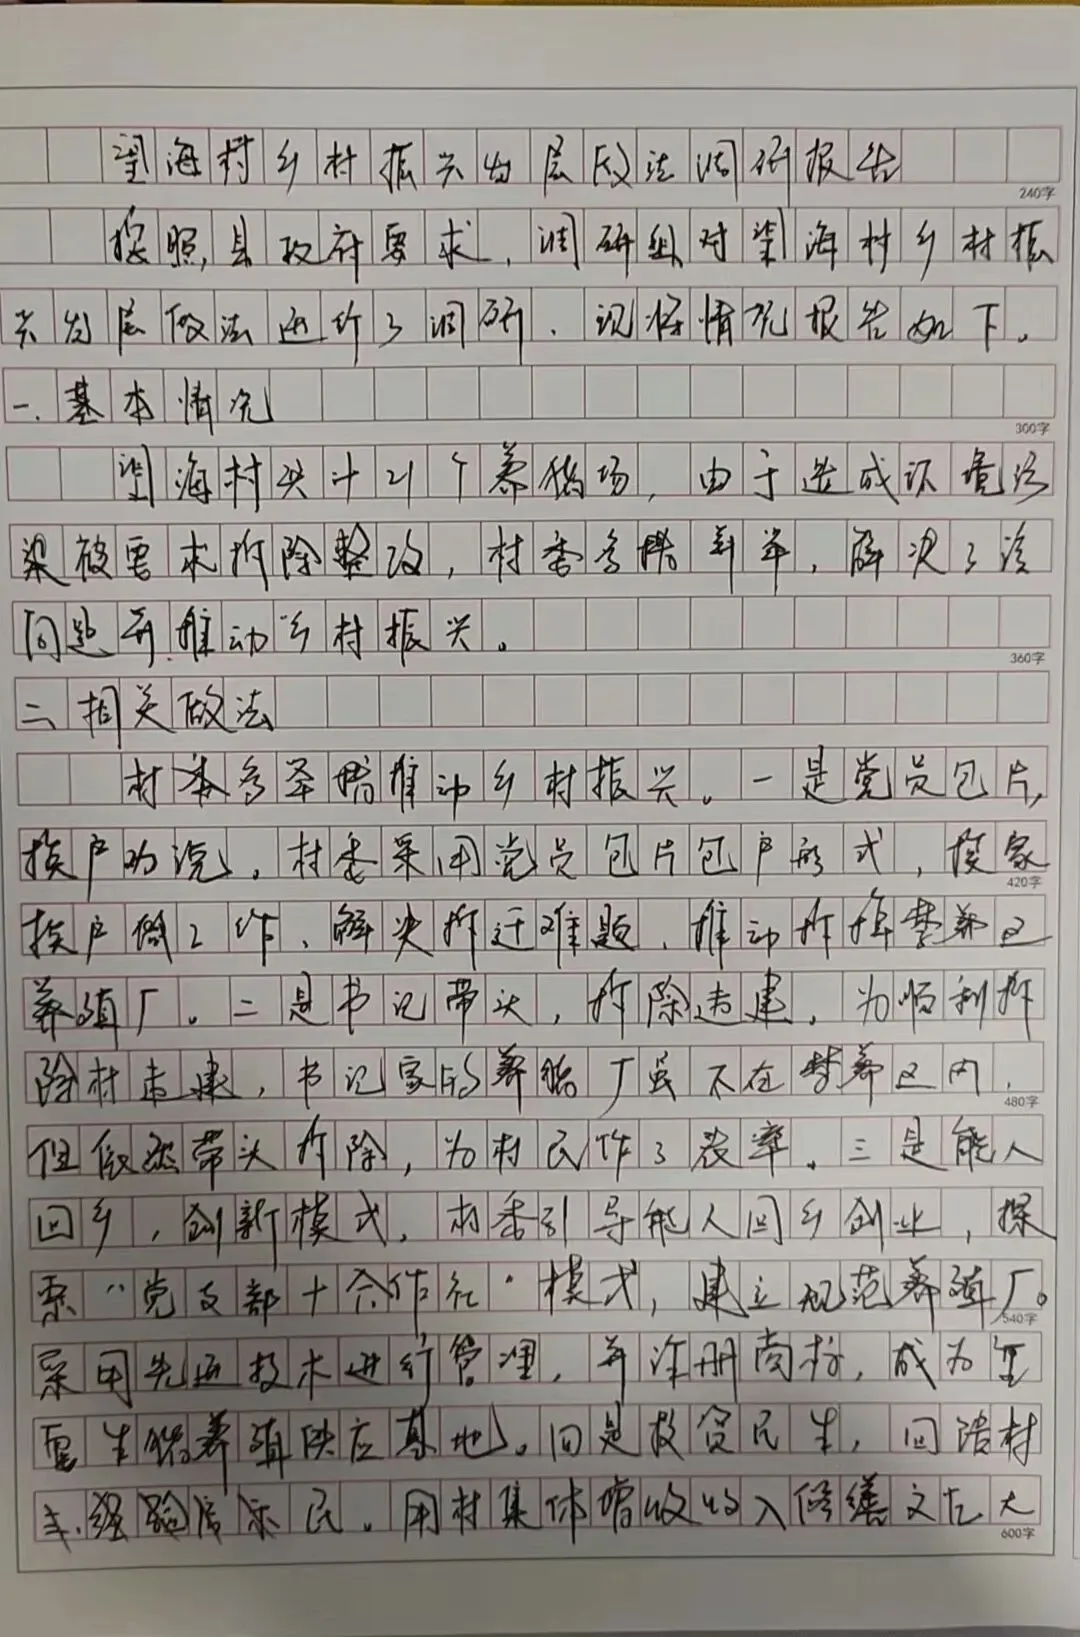 望海村乡村振兴发展做法调研报告
240字
按照县政府要求，调研组对望海村乡村振
兴发展做法进行了调研，现将情况报告如下。
一、基本情况
300字
望海村共计21个养猪场，由于造成环境污
染被要求拆除整改，村委多措并举，解决了该
问题并推动乡村振兴。
360字
二、相关做法
村委多举措推动乡村振兴。一是党员包片，
挨户劝说。村委采用党员包片包户形式，挨家
420字
挨户做工作，解决拆迁难题，推动拆除禁养区
养殖厂。二是书记带头，拆除违建。为顺利拆
除村违建，书记家的养猪厂虽不在禁养区内，
480字
但依然带头拆除，为村民作了表率。三是能人
回乡，创新模式。村委引导能人回乡创业，探
索“党支部十合作社”模式，建立规范养殖厂。
540字
采用先进技术进行管理，并注册商标，成为重
要生猪养殖供应基地。四是投资民生，回馈村
民。用村集体增收收入修缮文化大
600字